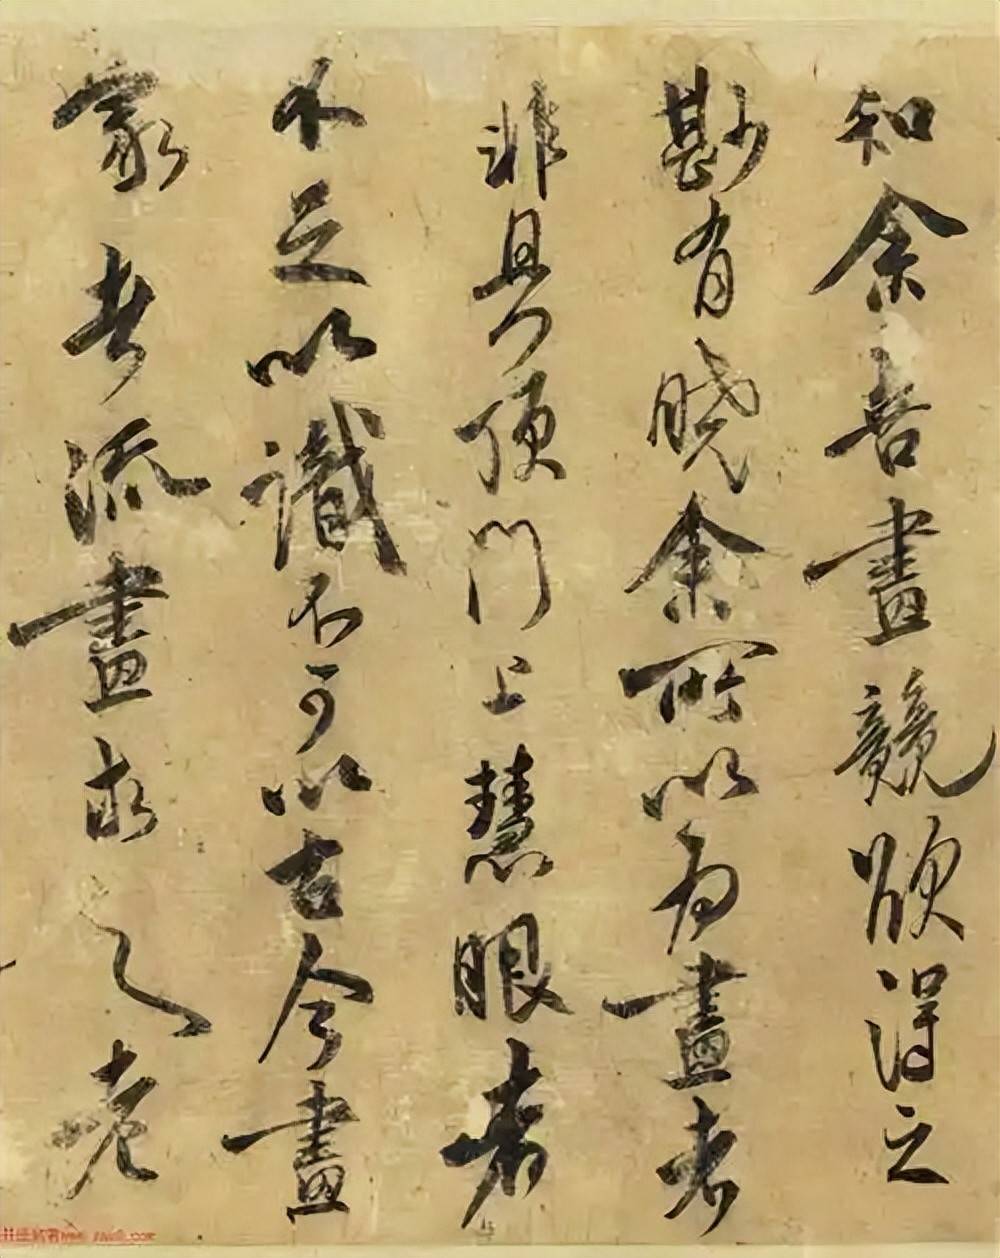 知余喜畫競欲得之
尠有曉余所以為畫者
非具頂門上慧眼者
不足以識不可以古今畫
家者流畫求之老